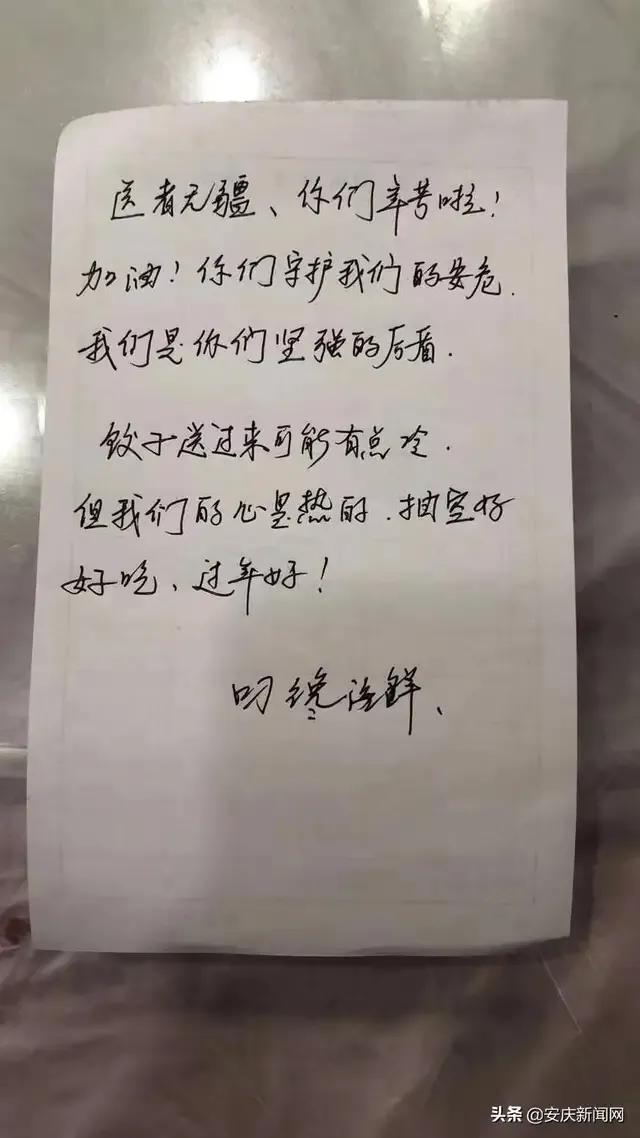 医者无疆、你们辛苦啦！
加油！你们守护我们的安危.
我们是你们坚强的后盾.
饺子送过来可能有点冷.
但我们的心是热的.抽空好
好吃、过年好！
叼馋海鲜、
头条 @安庆新闻网